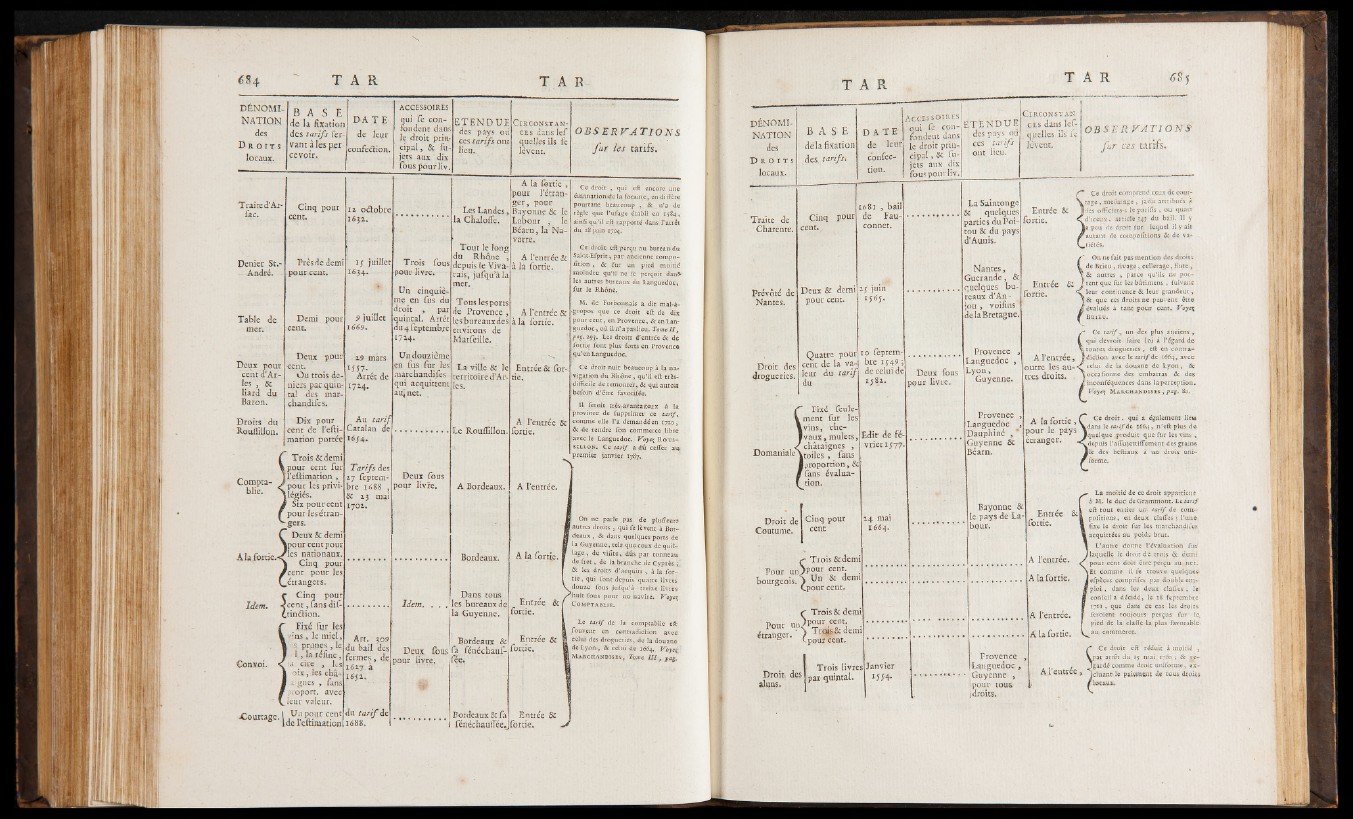 684 TAR TAR
DÉNOMI-
NATION
des
DROITS
locaux.
BASE
de la fixation
des tarifs ser-
vant à les per
cevoir.
DATE
de leur
confection.
ACCESSOIRES
qui se con-
fondent dans
le droit prin-
cipal, & su-
jets aux dix
sous pour liv.
ETENDUE
des pays où
ces tarifs ont
lieu.
CIRCONSTAN-
ces dans lef
quelles ils se
lèvent.
OBSERVATIONS
sur les tarifs.
Traite d'Ar-
sac.
Cinq pour
cent.
12 octobre
1632.
Les Landes,
la Chalosse.
A la sortie,
pour l'étran-
ger, pour
Bayonne & le
Labour, le
Béarn, la Na-
varre.
Ce droit, qui est encore une
émanation de la foraine, en diffère
pourtant beaucoup, & n'a de
règle que l'usage établi en 1784,
ainsi qu'il est rapporté dans l'arrêt
du 28 juin 1704.
Denier St.-
André.
Près de demi
pour cent.
15 juillet
1634.
Trois sous
pour livre.
Tout le long
du Rhône,
depuis le Viva-
rais, jusqu'à la
mer.
A l'entrée &
à la sortie.
Ce droit est perçu au bureau du
Saint-Esprit, par ancienne compo-
sition, & sur un pied moitié
moindre qu'il ne se perçoit dans
les autres bureaux de Languedoc,
sur le Rhône.
Table de
mer.
Demi pour
cent.
9 juillet
1669.
Un cinquiè-
me en sus du
droit, par
quintal. Arrêt
du 4 septembre
1724.
Tous les ports
de Provence,
les bureaux des
environs de
Marseille.
A l'entrée &
à la sortie.
M. de Forbonnais a dit mal-à-
propos que ce droit est de dix
pour cent, en Provence, & en Lan-
guedoc, où il n'a pas lieu. Tome II,
pag. 293. Les droits d'entrée & de
sortie sont plus forts en Provence
qu'en Languedoc.
Deux pour
cent d'Ar-
les, &
liard du
Baron.
Deux pour
cent.
Ou trois de-
niers par quin-
tal des mar-
chandises.
29 mars
1557.
Arrêt de
1724.
Un douzième
en sus sur les
marchandises
qui acquittent
au net.
La ville & le
territoire d'Ar-
les.
Entrée & sor-
tie.
Ce droit nuit beaucoup à la na-
vigation du Rhône, qu'il est très-
difficile de remonter, & qui auroit
besoin d'être favorisée.
Droits du
Roussillon.
Dix pour
cent de l'esti-
mation portée
Au tarif
Catalan de
1654.
Le Roussillon.
A l'entrée &
sortie.
Il seroit très-avantageux à la
province de supprimer ce tarif,
comme elle l'a demandé en 1720,
& de rendre son commerce libre
avec le Languedoc. Voyez ROUS-
SILLON. Ce tarif a dû cesser au
premier janvier 1767.
Compta-
blie.
Trois & demi
pour cent sur
l'estimation,
pour les privi-
légiés.
Six pour cent
pour les étran-
gers.
Tarifs des
27 septem-
bre 1688,
& 23 mai
1702.
Deux sous
pour livre.
A Bordeaux.
A l'entrée.
A la sortie.
Deux & demi
pour cent pour
les nationaux.
Cinq pour
cent pour les
étrangers.
Bordeaux.
A la sortie.
On ne parle pas de plusieurs
autres droits, qui se lèvent à Bor-
deaux, & dans quelques ports de
la Guyenne, tels que ceux de quil-
lage, de visite, dûs par tonneau
de fret, de la branche de Cyprès,
& les droits d'acquits, à la sor-
tie, qui sont depuis quatre livres
douze sous jusqu'à treize livres
huit sous pour un navire. Voyez
COMPTABLIE.
Idem.
Cinq pour
cent, sans dif-
tinction.
Idem.
Dans tous
les bureaux de
la Guyenne.
Entrée &
sortie.
Convoi.
Fixé sur les
vins, le miel,
prunes, le
la résine,
cire, les
les châ-
gnes, sans
proport. avec
leur valeur.
Art. 309
du bail des
fermes, de
1627 à
1652.
Deux sous
pour livre.
Bordeaux &
sa sénéchauss-
sée.
Entrée &
sortie.
Le tarif de la comptablie est
souvent en contradiction avec
celui des drogueries, de la douane
de Lyon, & celui de 1664. Voyez
MARCHANDISES, Tome III, pag.
Courtage.
Un pour cent
de l'estimation
du tarif de
1688.
Bordeaux & sa
sénéchaussée.
Entrée &
sortie.
TAR TAR 685
DÉNOMI-
NATION
des
DROITS
locaux.
BASE
de la fixation
des tarifs.
DATE
de leur
confec-
tion.
ACCESSOIRES
qui se con-
fondent dans
le droit prin-
cipal, & su-
jets aux dix
sous pour liv.
ETENDUE
des pays où
ces tarifs
ont lieu.
CIRCONSTAN
ces dans les-
quelles ils se
lèvent.
OBSERVATIONS
sur ces tarifs.
Traite de
Charente.
Cinq pour
cent.
1681, bail
de Fau-
connet.
La Saintonge
& quelques
parties du Poi-
tou & du pays
d'Aunis.
Entrée &
sortie.
Ce droit comprend ceux de cour-
tage, mesurage, jadis attribués à
des officiers; le parisis, ou quart
d'iceux, article 245 du bail. Il y
a peu de droit sur lequel il y ait
autant de compositions & de va-
riétés.
Prévôté de
Nantes.
Deux & demi
pour cent.
25 juin
1565.
Nantes,
Guerande, &
quelques bu-
reaux d'An-
jou, voisins
de la Bretagne.
Entrée &
sortie.
On ne fait pas mention des droits
de Brieu, rivage, cellerage, flute,
& autres, parce qu'ils ne por-
tent que sur les bâtimens, suivant
leur contenance & leur grandeur,
& que ces droits ne peuvent être
évalués à tant pour cent. Voyez
BOETE.
Droit des
drogueries.
Quatre pour
cent de la va-
leur du tarif
du
10 septem-
bre 1549;
de celui de
1582.
Deux sous
pour livre.
Provence,
Languedoc,
Lyon,
Guyenne.
A l'entrée,
outre les au-
tres droits.
Ce tarif, un des plus anciens,
qui devroit faire loi à l'égard de
toutes drogueries, est en contra-
diction avec le tarif de 1664, avec
celui de la douane de Lyon, &
occasionne des embarras & des
inconséquences dans la perception.
Voyez MARCHANDISES, pag. 82.
Domaniale
Fixé seule-
ment sur les
vins, che-
vaux, mulets,
châtaignes,
toiles, sans
proportion, &
sans évalua-
tion.
Edit de fé-
vrier 1577.
Provence,
Languedoc,
Dauphiné,
Guyenne &
Béarn.
A la sortie,
pour le pays
étranger.
Ce droit, qui a également lieu
dans le tarif de 1664, n'est plus de
quelque produit que sur les vins,
depuis l'assujettissement des grains
& des bestiaux à un droit uni-
forme.
Droit de
Coutume.
Cinq pour
cent
24 mai
1664.
Bayonne &
le pays de La-
bour.
Entrée &
sortie.
La moitié de ce droit appartient
à M. le duc de Grammont. Le tarif
est tout entier un tarif de com-
position, en deux classes; l'une
fixe le droit sur les marchandises
acquittées au poids brut.
L'autre donne l'évaluation sur
laquelle le droit de trois & demi
pour cent doit être perçu au net.
Et comme il se trouve quelques
espèces comprises par double em-
ploi, dans les deux classes, le
conseil a décidé, le 28 septembre
1761, que dans ce cas les droits
seroient toujours perçus sur le
pied de la classe la plus favorable
au commerce.
Pour un
bourgeois.
Trois & demi
pour cent.
Un & demi
pour cent.
A l'entrée.
A la sortie.
Pour un
étranger.
Trois & demi
pour cent.
Trois & demi
pour cent.
A l'entrée.
A la sortie.
Droit des
aluns.
Trois livres
par quintal.
Janvier
1554.
Provence,
Languedoc,
Guyenne,
pour tous
droits.
A l'entrée,
Ce droit est réduit à moitié,
par arrêt du 15 mai 1760, & re-
gardé comme droit uniforme, ex-
cluant le paiement de tous droits
locaux.